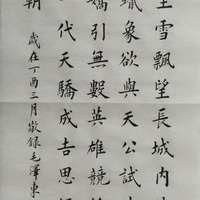 里雪飄望長城内
蠟象欲與天公試
嬌引無數英雄競
代天驕成吉思
朝
歲在丁酉三月敬録毛澤東